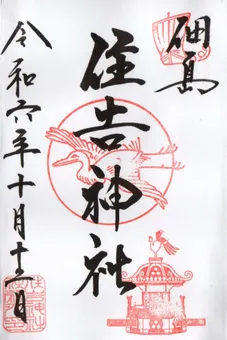 細島
住吉神社
令和六年十月十三日